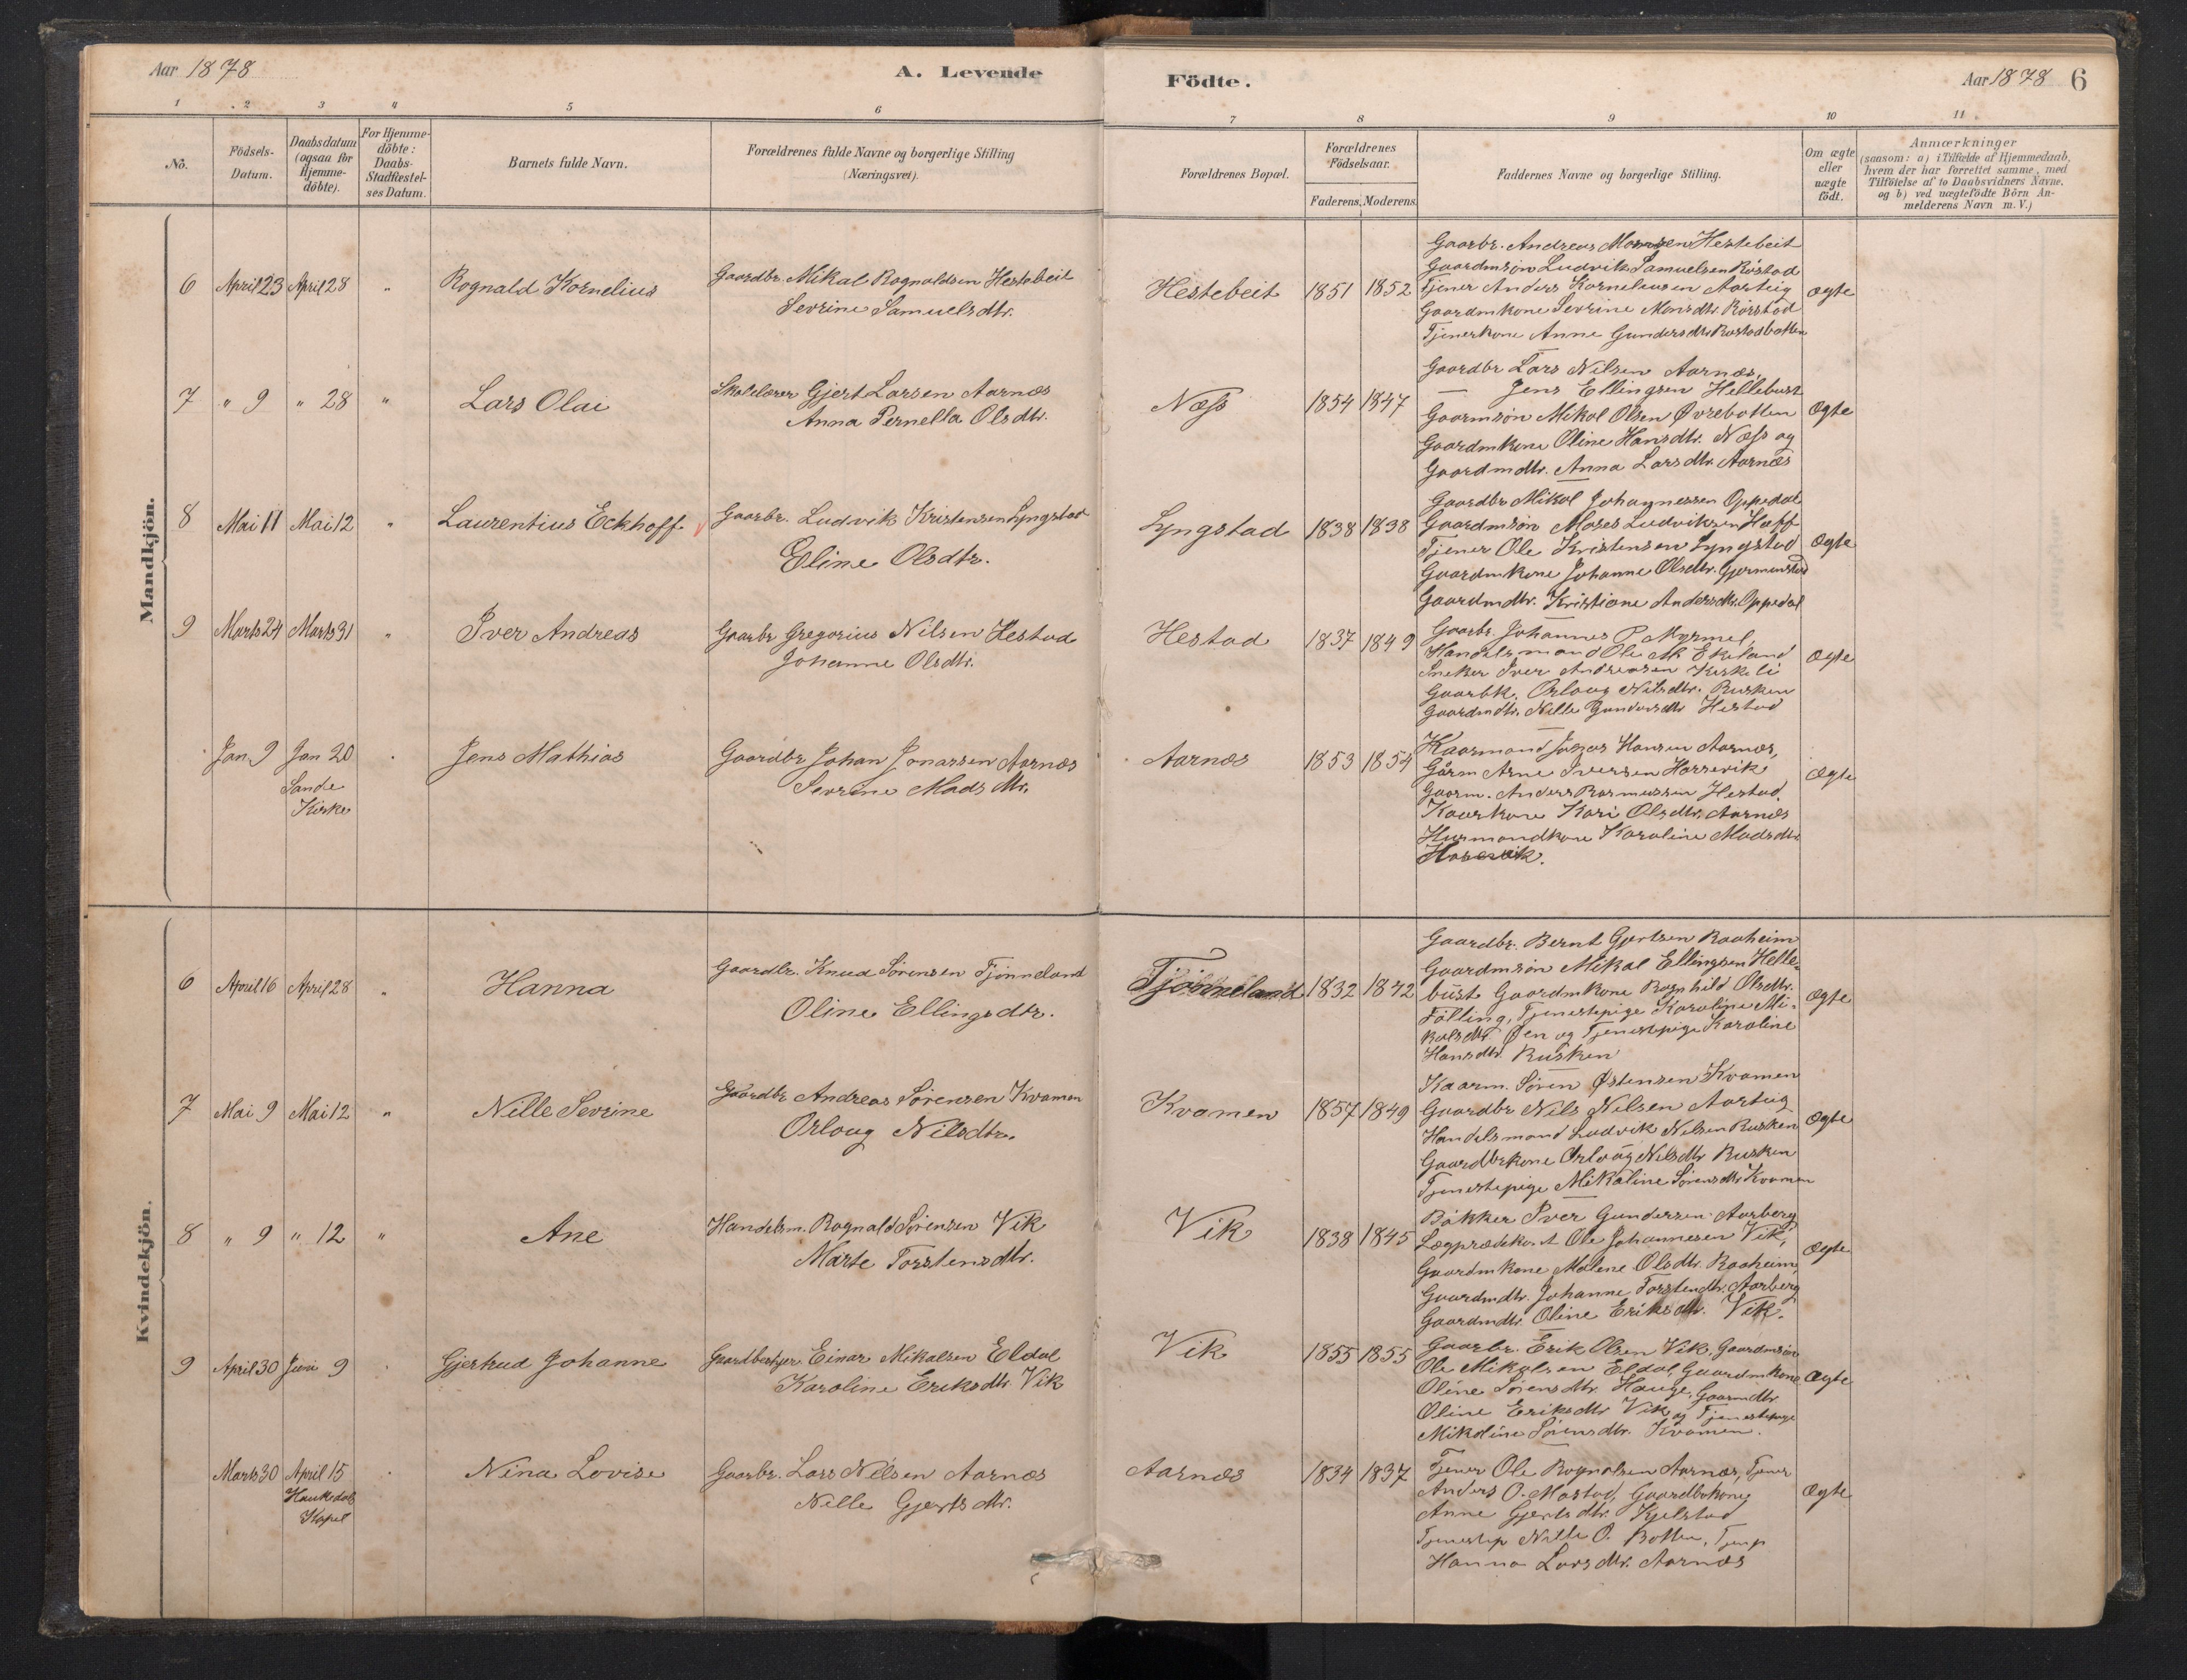 Aar 1878
A. Levende
Födte.
Aar 1878
6
1 2 3 4 5 6 7 8 9 10 11
No.
Födsels-
Datum.
Daabsdatum
(ogsaa for
Hjemme-
döbte).
For Hjemme-
döbte:
Daabs-
Stadfæstel-
ses Datum.
Barnets fulde Navn.
Forældrenes fulde Navne og borgerlige Stilling
(Næringsvei).
Forældrenes Bopæl.
Forældrenes
Födselsaar.
Faderens. Moderens.
Faddernes Navne og borgerlige Stilling.
Om ægte
eller
uægte
födt.
Anmærkninger
(saasom: a) i Tilfælde af Hjemmedaab,
hvem der har forrettet samme, med
Tilföielse af to Daabsvidners Navne,
og b) ved uægtefödte Börn An-
melderens Navn m. V.)
Mandkjön.
6 April 23 April 28 " Rognald Kornelius
Gaardbr. Mikal Rognaldsen Hestebeit
Severine Samuelsdtr.
Hestebeit 1851 1852
Gaarbr. Andreas Monsen Hestebeit
Gaardmsön Ludvik Samuelsen Röstad
Tjener Anders Korneliusen Aartug
Gaardmkone Severine Monsdtr. Rörstad
Tjenerkone Anne Gundersdtr. Röstadbotten
ægte
7 " 9 " 28 " Lars Olai
Skolelærer Gjert Larsen Aarnæs
Anna Pernella Olsdtr.
Næss 1854 1847
Gaardbr Lars Nilsen Aarnæs,
— Jens Ellingsen Hellebust
Gaarmsön Mikal Olsen Øvrebotten
Gaardmkone Oline Hansdtr. Næss og
Gaardmdtr. Anna Larsdtr. Aarnæs
Ægte
8 Mai 11 Mai 12 " Laurentius Eckhoff
Gaarbr. Ludvik Kristensen Lyngstad
Eline Olsdtr.
Lyngstad 1838 1838
Gaardbr Mikal Johannessen Oppedal
Gaardmsön Moses Ludviksen Hæff
Tjener Ole Kristensen Lyngstad
Gaardmkone Johanne Olsdtr. Gjermunstad
Gaardmdtr. Kristiane Andersdtr. Oppedal
Ægte
9 Marts 24 Marts 31 " Iver Andreas
Gaarbr Gregorius Nilsen Hestad
Johanne Olsdtr.
Hestad 1837 1849
Gaarbr. Johannes P. Myrmel,
Handelsmand Ole M. Ekeland
Sneker Iver Andreasen Kirkeli
Gaarbk. Orloug Nilsdtr. Rusken
Gaardmdtr. Nille Gundersdtr Hestad
Ægte
Jan. 9 Jan 20
Sande
Kirke
Jens Mathias
Gaardbr Johan Jonassen Aarnæs
Severine Madsdtr.
Aarnæs 1853 1854
Kaarmand Hansen Aarnæs,
Gårm Arne Iversen Horsevik
Gaarm. Anders Rasmussen Hestad,
Kaarkone Kari Olsdtr. Aarnæs
Husmandkone Karoline Madsdtr
Horsevik.
Ægte
Kvindekjön.
6 April 16 April 28 " Hanna
Gaardbr. Knud Sörensen Tjönneland
Oline Ellingsdtr.
Tjönneland 1832 1842
Gaardbr. Bernt Gjertsen Raaheim
Gaardmsön Mikal Ellingsen Helle-
bust Gaardmkone Rognhild Olsdtr.
Fölling, Tjenestepige Karoline Mi-
kalsdtr. Øen og Tjenestepige Karoline
Hansdtr. Rusken
Ægte
7 Mai 9 Mai 12 " Nille Sevrine
Gaardbr Andreas Sörensen Kvamen
Orloug Nilsdtr.
Kvamen 1857 1849
Kaarm. Sören Østensen Kvamen
Gaardbr Nils Nilsen Aartug
Handelsmand Ludvik Nilsen Rusken
Gaardbrkone Orloug Nilsdtr Rusken
Tjenestepige Mikaline Sörensdtr Kvamen
Ægte
8 " 9 " 12 " Ane
Handelsm. Rognald Sörensen Vik
Marte Torstensdtr.
Vik 1838 1845
Bökker Iver Gundersen Aarberg
Lægprædikant Ole Johannesen Vik,
Gaardmkone Malene Olsdtr. Raaheim,
Gaardmdtr. Johanne Torstendtr. Aarberg
Gaardmdtr. Oline Eriksdtr. Vik.
Ægte
9 April 30 Juni 9 Gjertrud Johanne
Gaardbestyrer Einar Mikalsen Eldal
Karoline Eriksdtr. Vik
Vik 1855 1855
Gaarbr. Erik Olsen Vik, Gaardmsön
Ole Mikalsen Eldal, Gaardmkone
Oline Sörensdtr. Hauge, Gaarmdtr
Oline Eriksdtr Vik og Tjenestepige
Mikaline Sörensdtr. Kvamen.
Ægte
Marts 30 April 15
Haukedals
Kapel
Nina Lovise
Gaarbr. Lars Nilsen Aarnæs
Nille Gjertsdtr.
Aarnæs 1834 1837
Tjener Ole Rognalsen Aarnæs, Tjener
Anders O. Mastad, Gaardbrkone
Anne Gjertsdtr. Kjelstad
Tjenestep Nille O. Botten, Tjenp
Hanna Larsdtr. Aarnæs
Ægte